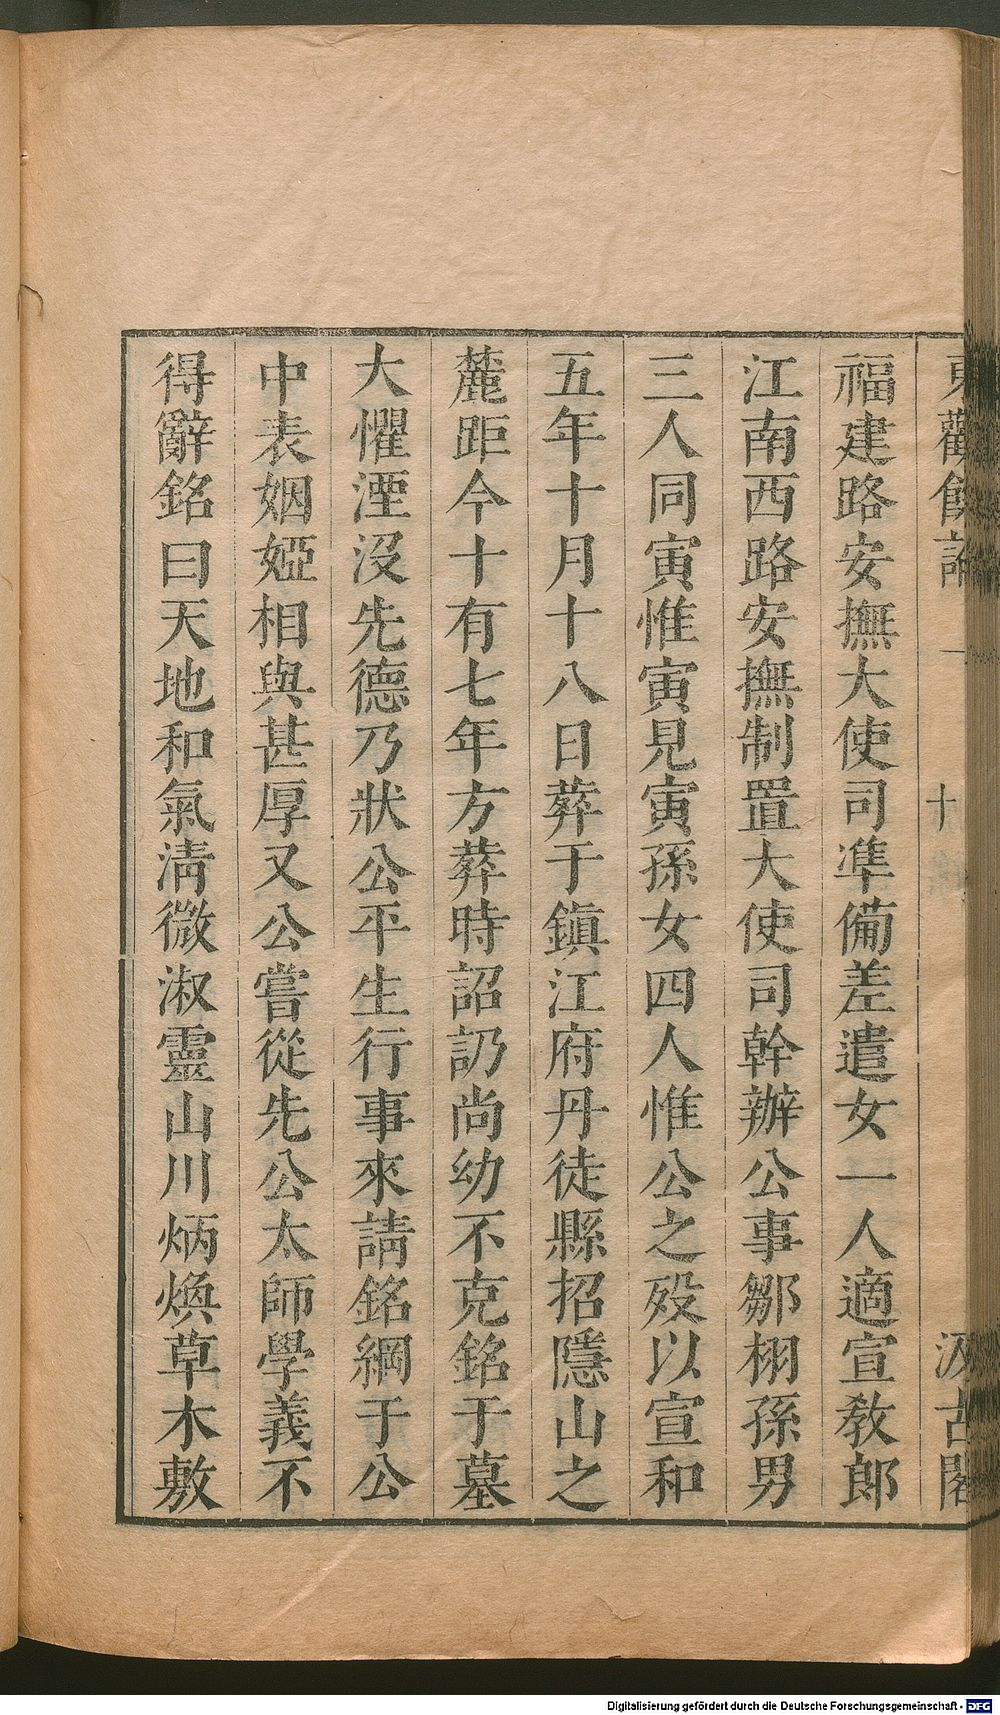 東觀餘論 一 十 汲古閣
福建路安撫大使司凖備差遣女一人適宣敎郎
江南西路安撫制置大使司幹辦公事鄒栩孫男
三人同寅惟寅見寅孫女四人惟公之歿以宣和
五年十月十八日葬于鎭江府丹徒縣招隱山之
麓距今十有七年方葬時詔訒尚幼不克銘于墓
大懼湮沒先德乃狀公平生行事來請銘綱于公
中表姻婭相與甚厚又公嘗從先公太師學義不
得辭銘曰天地和氣淸微淑靈山川炳煥草木敷
Digitalisierung gefördert durch die Deutsche Forschungsgemeinschaft - DFG